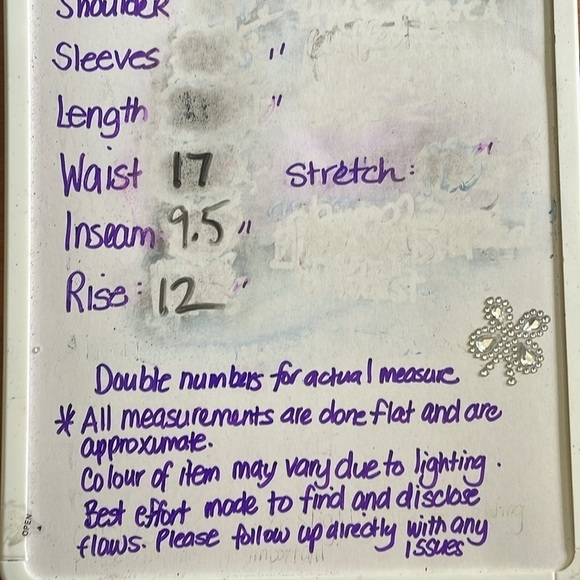 Shoulder
Sleeves "
Length "
Waist 17 Stretch: "
Inseam 9.5 "
Rise: 12 "
Double numbers for actual measure
* All measurements are done flat and are
approxumate.
Colour of item may vary due to lighting.
Best effort made to find and disclose
flaws. Please follow up directly with any
issues
OPEN